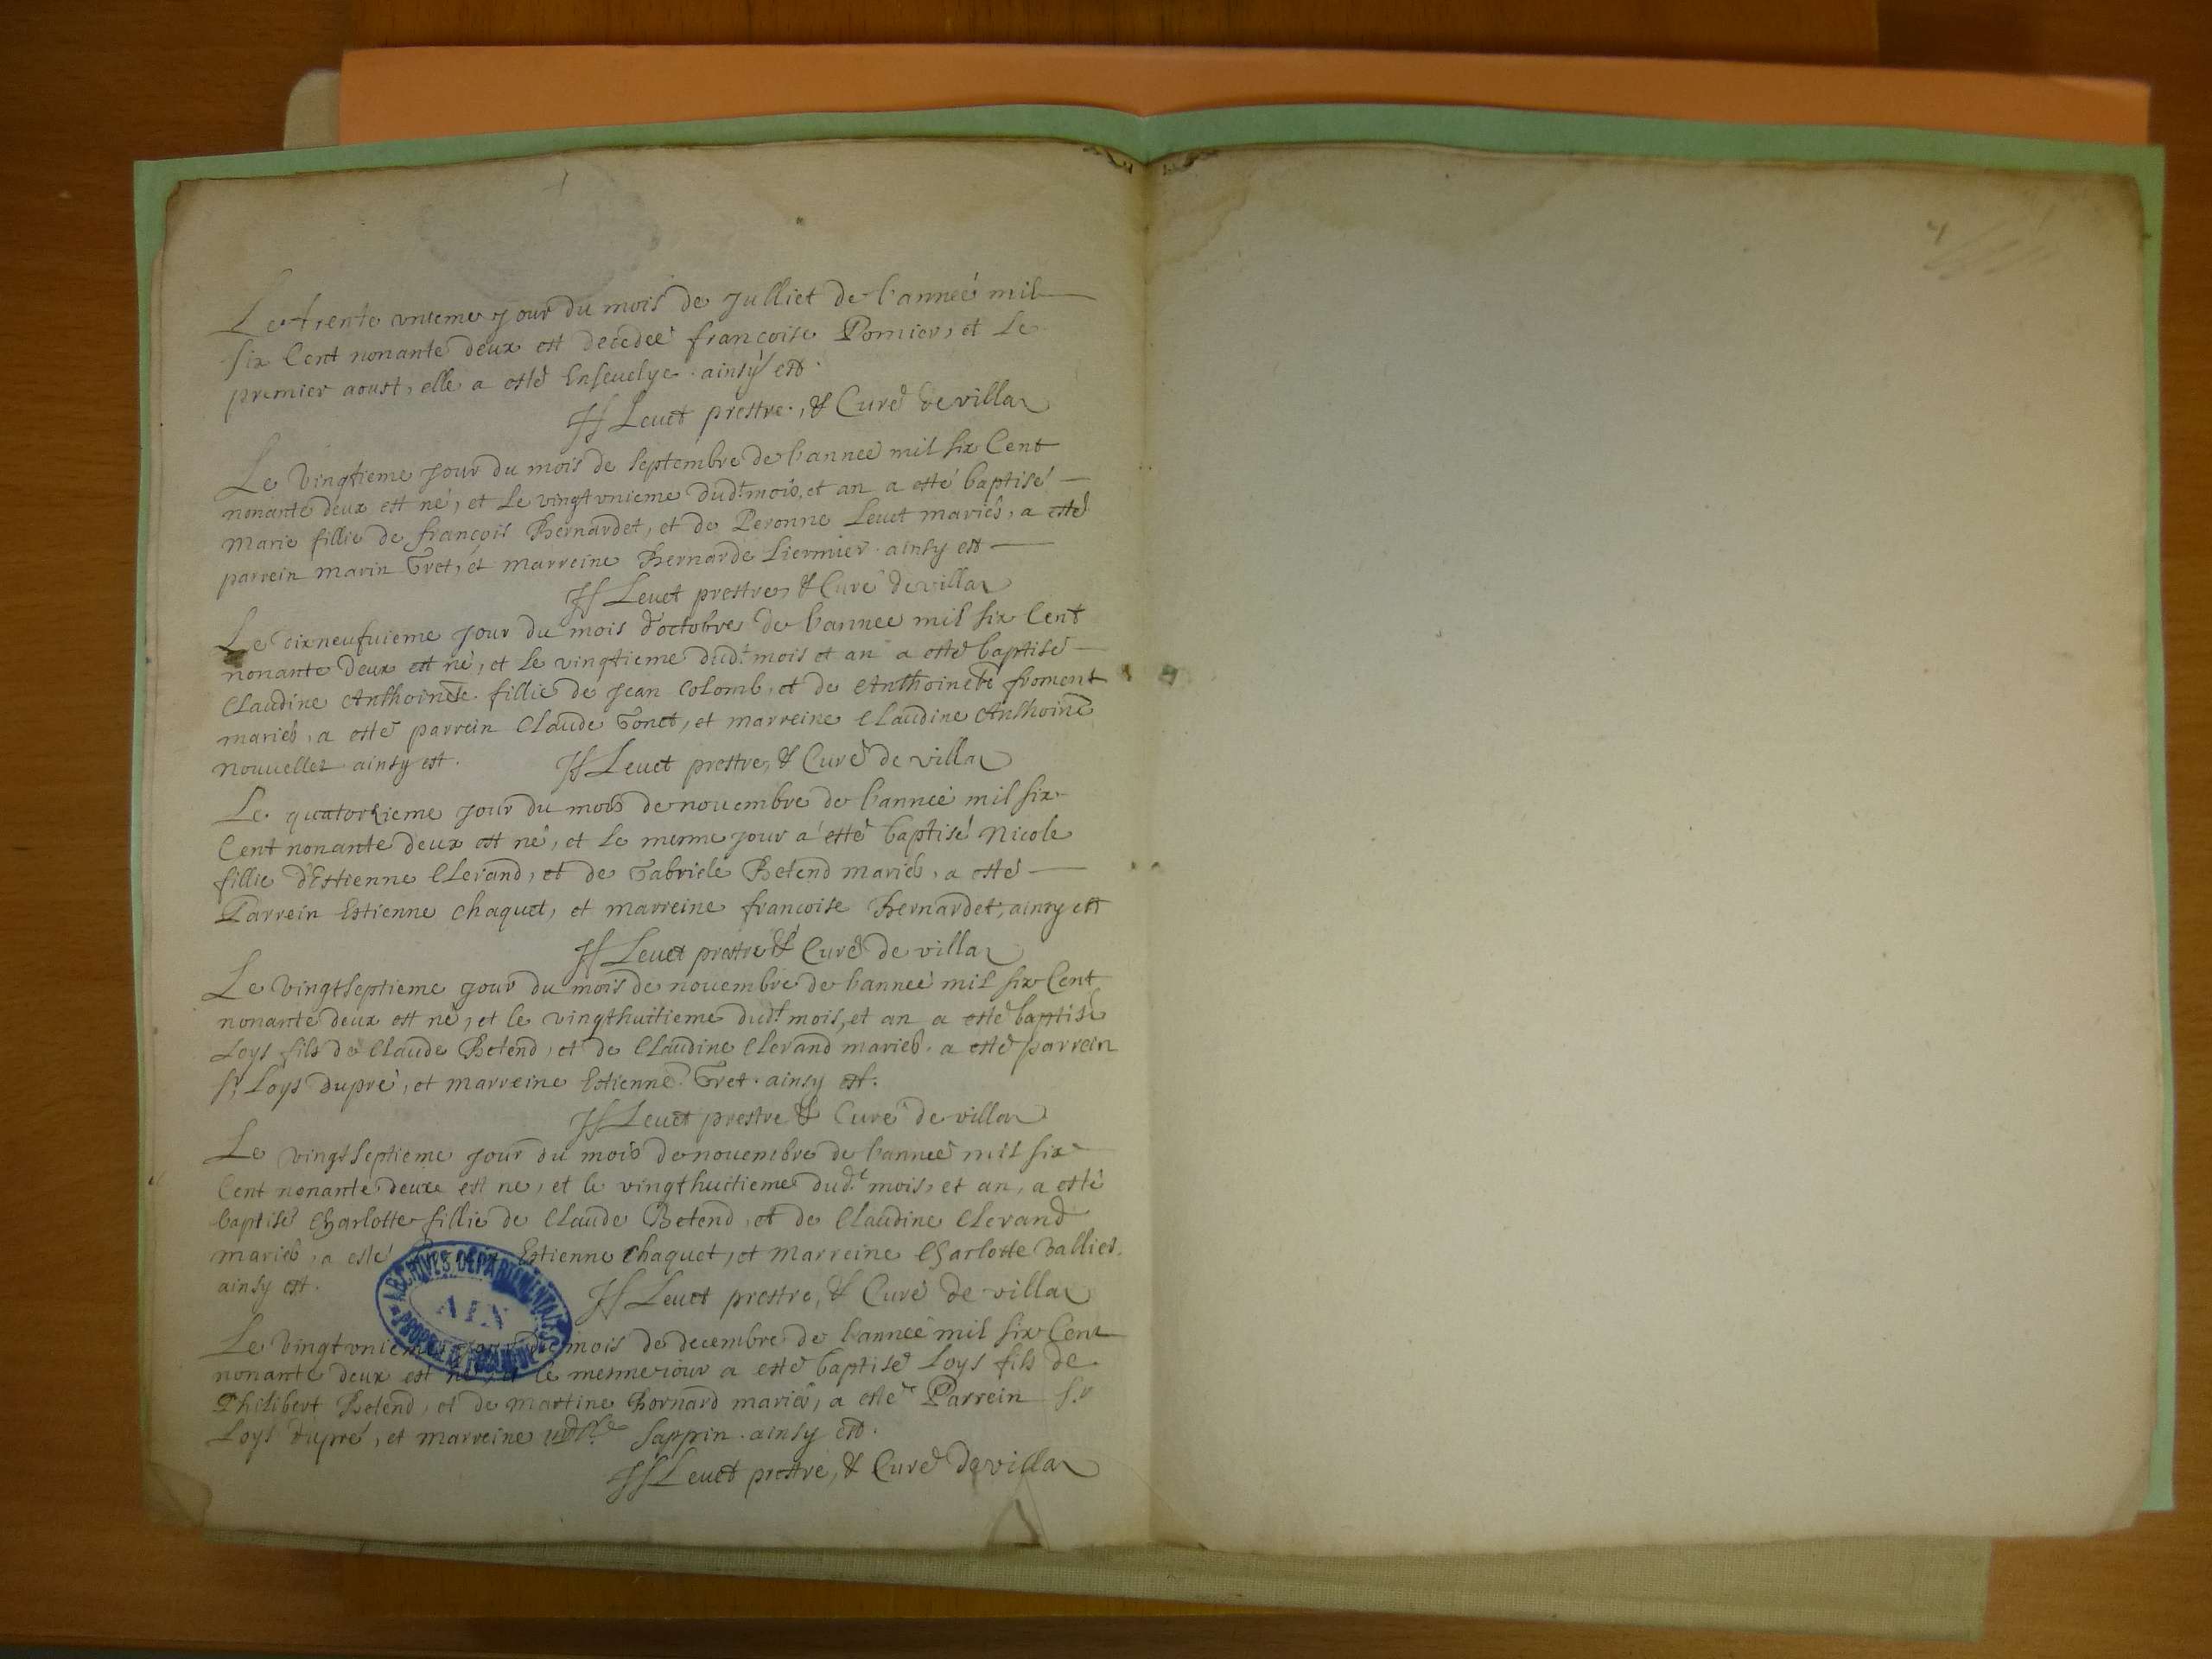 Le trente unieme jour du mois de Julliet de l'anneé mil
six Cent nonante deux est decedeé françoise Pomier, et le
premier aoust, elle a esté Enseuelye. ainsy est.
Leuet prestre, & Curé de villar
Le vingtieme jour du mois de septembre de l'anneé mil six Cent
nonante deux est né, et le vingtunieme dud.t mois, et an a esté baptisé
Marie fillie de françois Bernardet, et de Peronne Leuet mariés, a esté
parrein marin Gret, et marreine Bernarde Liermier. ainsy est
Leuet prestre, & Curé de villar
Le dixneufuieme jour du mois d'octobre de l'anneé mil six Cent
nonante deux est né, et le vingtieme dud.t mois et an a esté baptisé
Claudine Anthoinete fillie de Jean Colomb, et de Anthoinete froment
mariés, a esté parrein Claude Gonet, et marreine Claudine Anthoine
Nouuellet ainsy est.
Leuet prestre, & Curé de villar
Le quatorzieme jour du mois de nouembre de l'anneé mil six
Cent nonante deux est né, et le mesme jour a esté baptisé Nicole
fillie d'Estienne Clerand, et de Gabriele Betend mariés, a esté
Parrein Estienne Chaquet, et marreine francoise Bernardet, ainsy est
Leuet prestre & Curé de villar
Le vingtseptieme jour du mois de nouembre de l'anneé mil six Cent
nonante deux est né, et le vingthuitieme dud.t mois, et an a esté baptisé
Loys fils de Claude Betend, et de Claudine Clerand mariés. a esté parrein
s.r Loys dupré, et marreine Estienne Gret. ainsy est.
Leuet prestre & Curé de villar
Le vingtseptieme jour du mois de nouembre de l'anneé mil six
Cent nonante deux est né, et le vingthuitieme dud.t mois, et an, a esté
baptisé Charlotte fillie de Claude Betend, et de Claudine Clerand
mariés, a esté Estienne Chaquet, et marreine Charlotte Vallier.
ainsy est.
Leuet prestre, & Curé de villar
ARCHIVES DEPARTEMENTALES
AIN
PROPRIÉTÉ PUBLIQUE
Le vingtunieme jour du mois de decembre de l'anneé mil six Cent
nonante deux est né, et le mesme iour a esté baptisé Loys fils de
Philibert Betend, et de Martine Bornard mariés, a esté Parrein s.r
Loys dupré, et marreine Sappin. ainsy est.
Leuet prestre, & Curé de villar